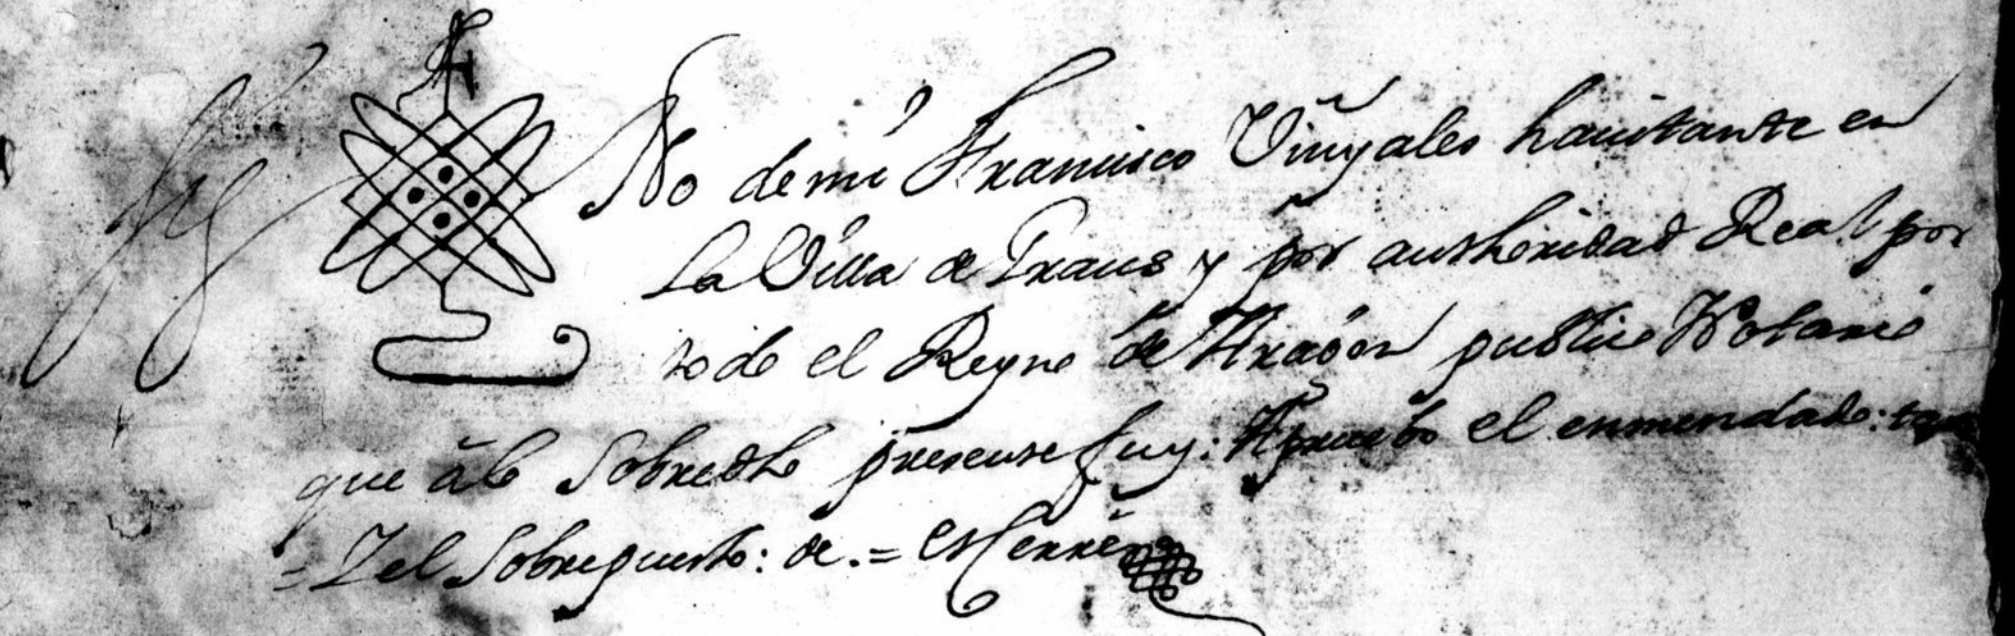 Sig No de mi Francisco Viñyales havitante en
La Villa de Graus y por authoridad Real por
todo el Reyno de Aragon publico Notario
que â lo Sobredho presente fuy: Apruebo el enmendado:
= Y el Sobrepuesto: de. = et Cerré